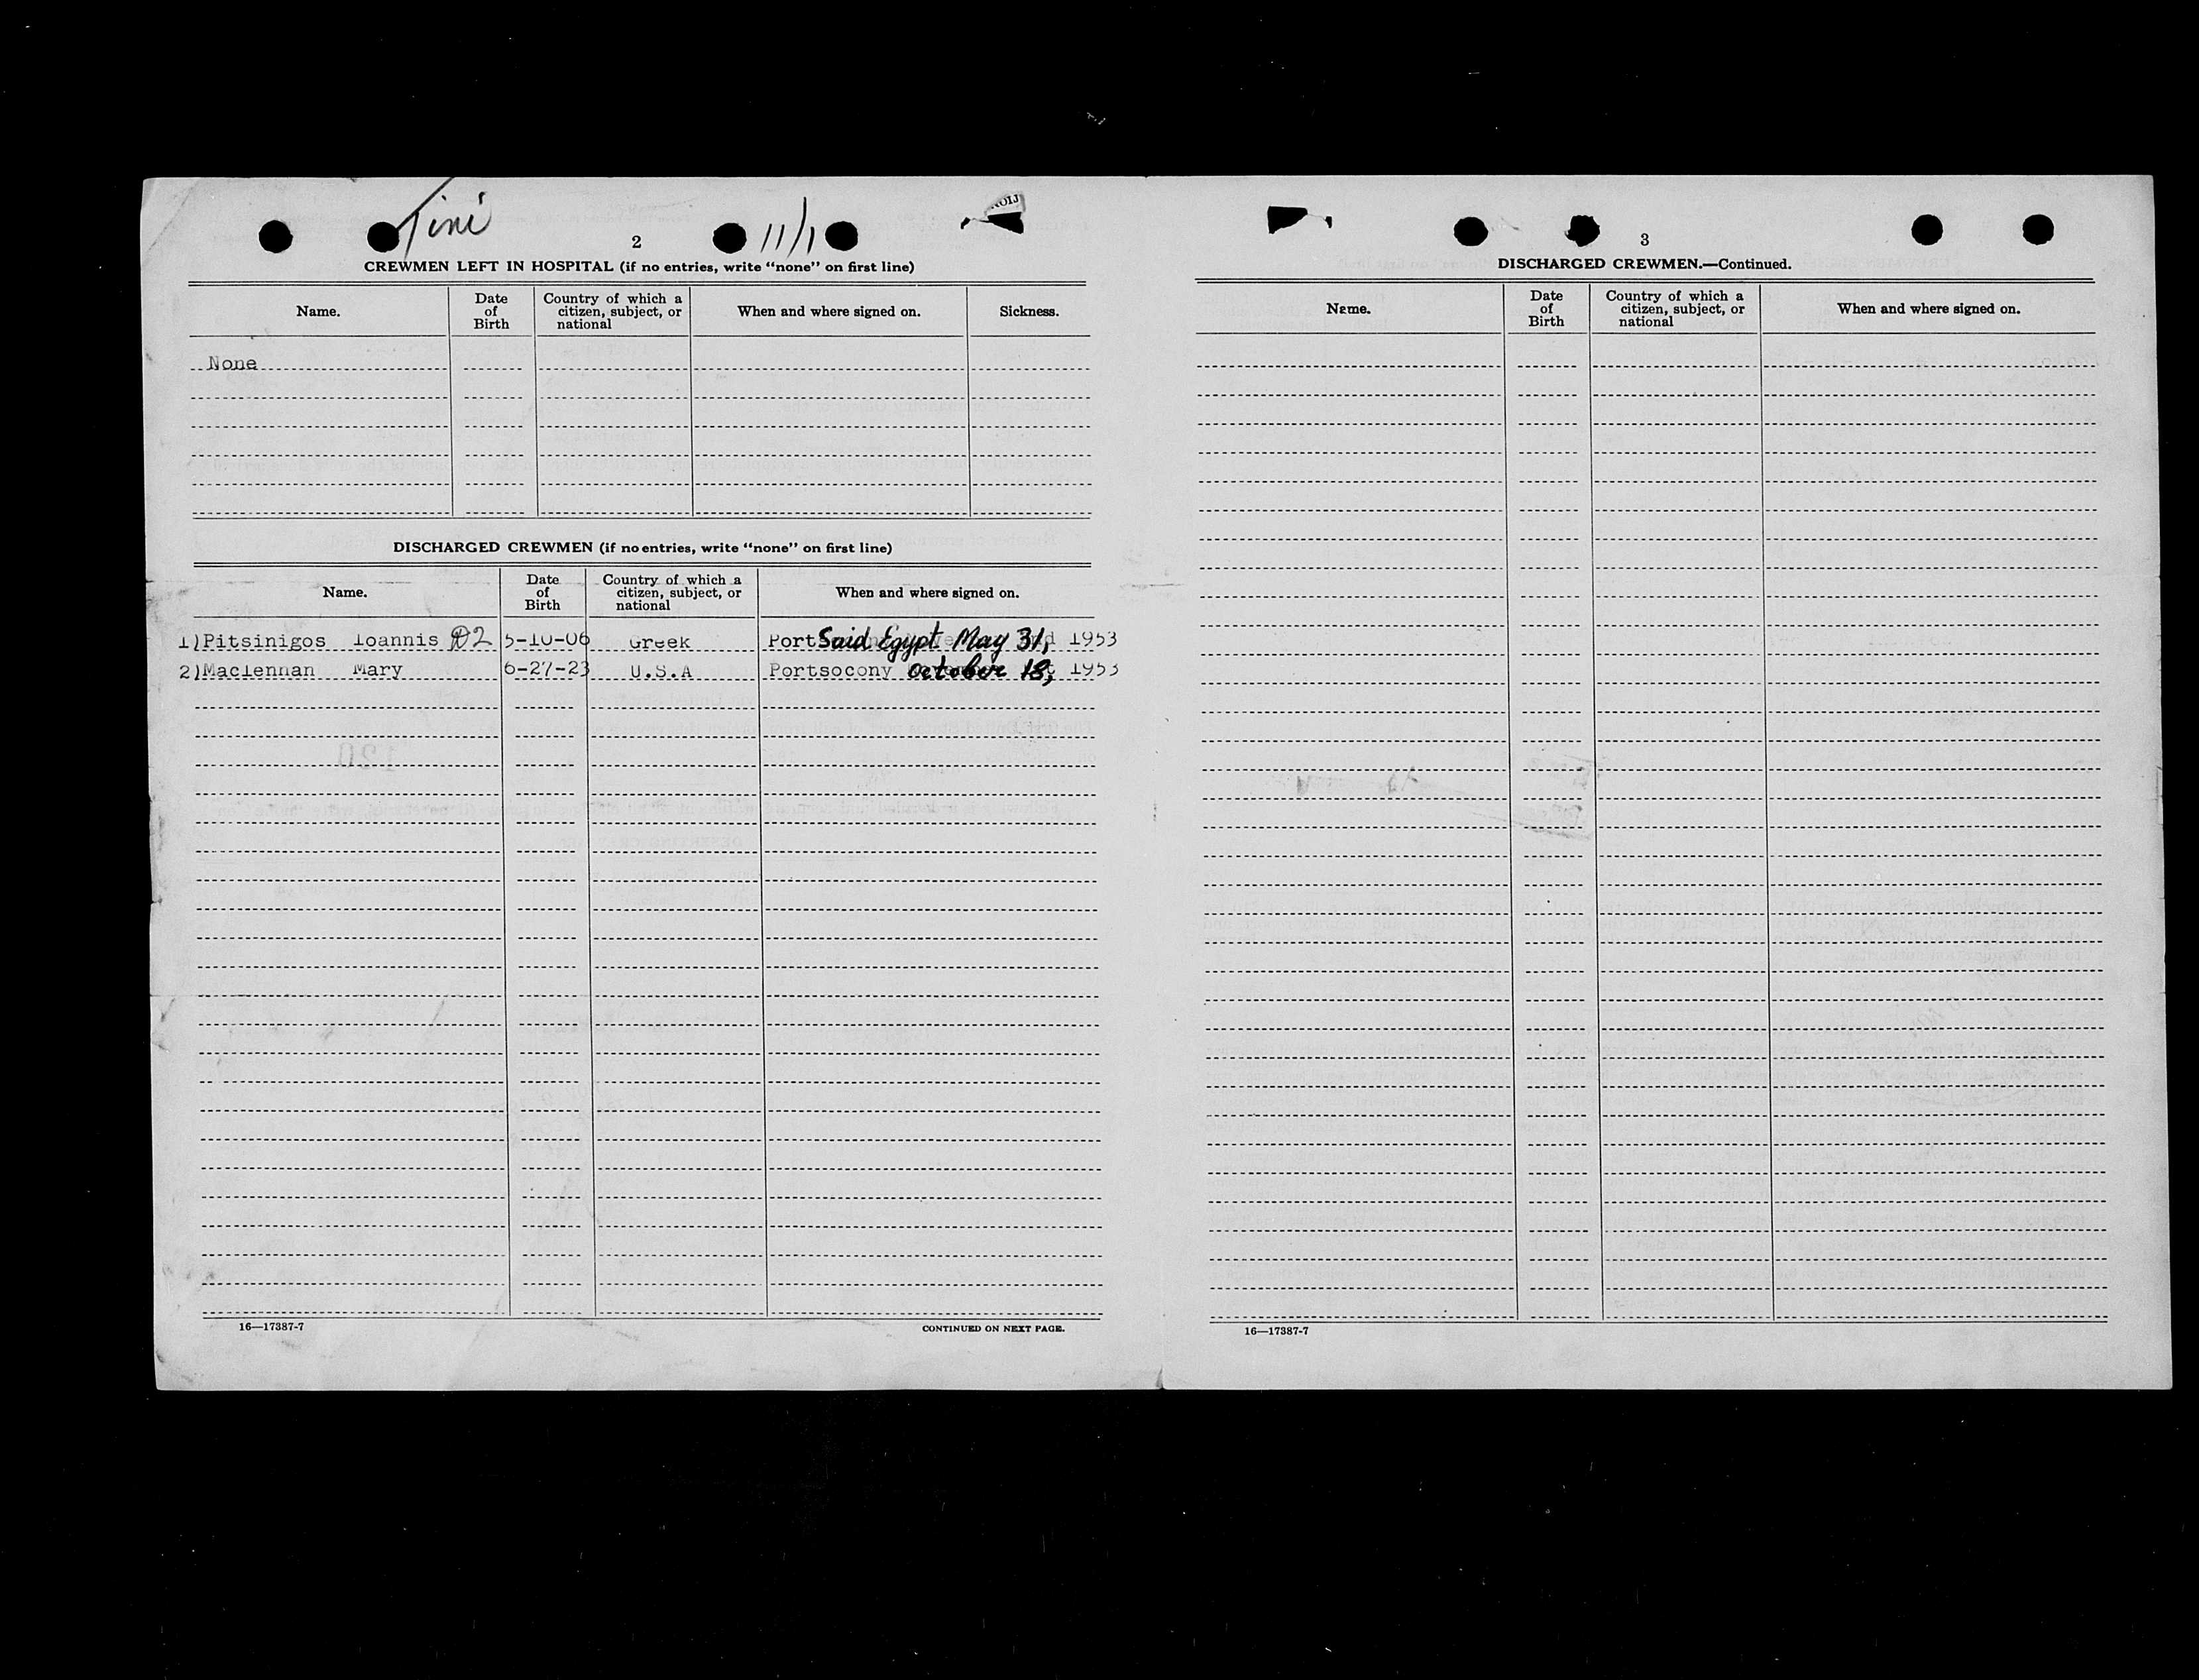 Tini 11/1
2
CREWMEN LEFT IN HOSPITAL (if no entries, write “none” on first line)
Name. Date of Birth Country of which a citizen, subject, or national When and where signed on. Sickness.
None
DISCHARGED CREWMEN (if no entries, write “none” on first line)
Name. Date of Birth Country of which a citizen, subject, or national When and where signed on.
1) Pitsinigos Ioannis D2 5-10-06 Greek Port Said Egypt May 31, 1953
2) Maclennan Mary 6-27-23 U.S.A Portsocony October 18, 1953
16—17387-7 CONTINUED ON NEXT PAGE.
3
DISCHARGED CREWMEN.—Continued.
Name. Date of Birth Country of which a citizen, subject, or national When and where signed on.
16—17387-7